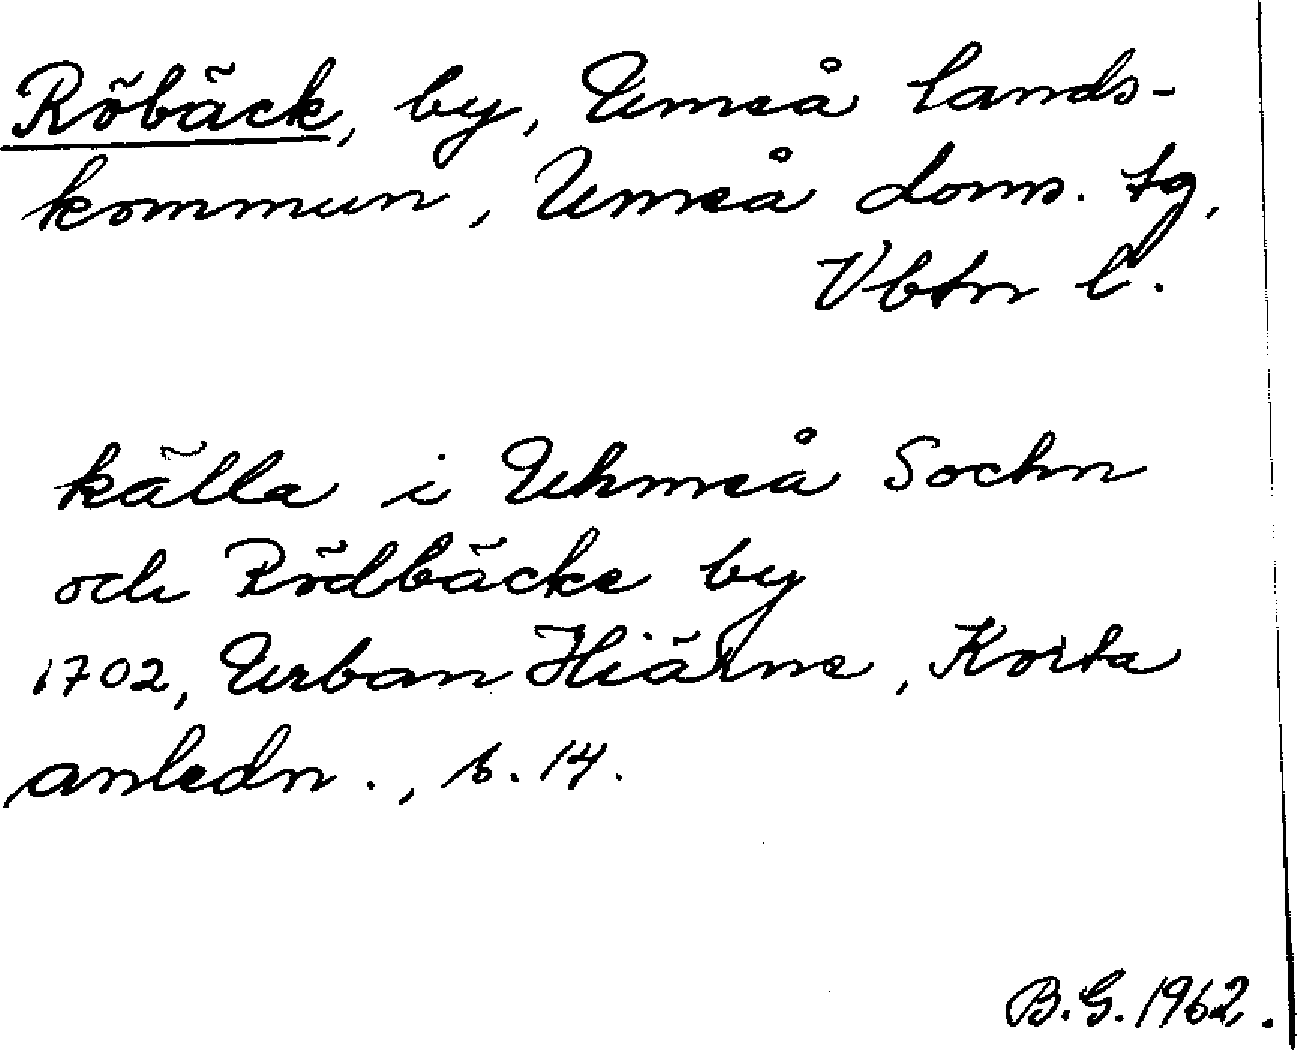 Röbäck, by, Umeå lands-
kommun, Umeå doms. tg,
Vbtn l.
källa i Uhmeå Sochn
och Rödbäcke by
1702, Urban Hiärne, Korta
anledn., s. 14.
B.G. 1962.